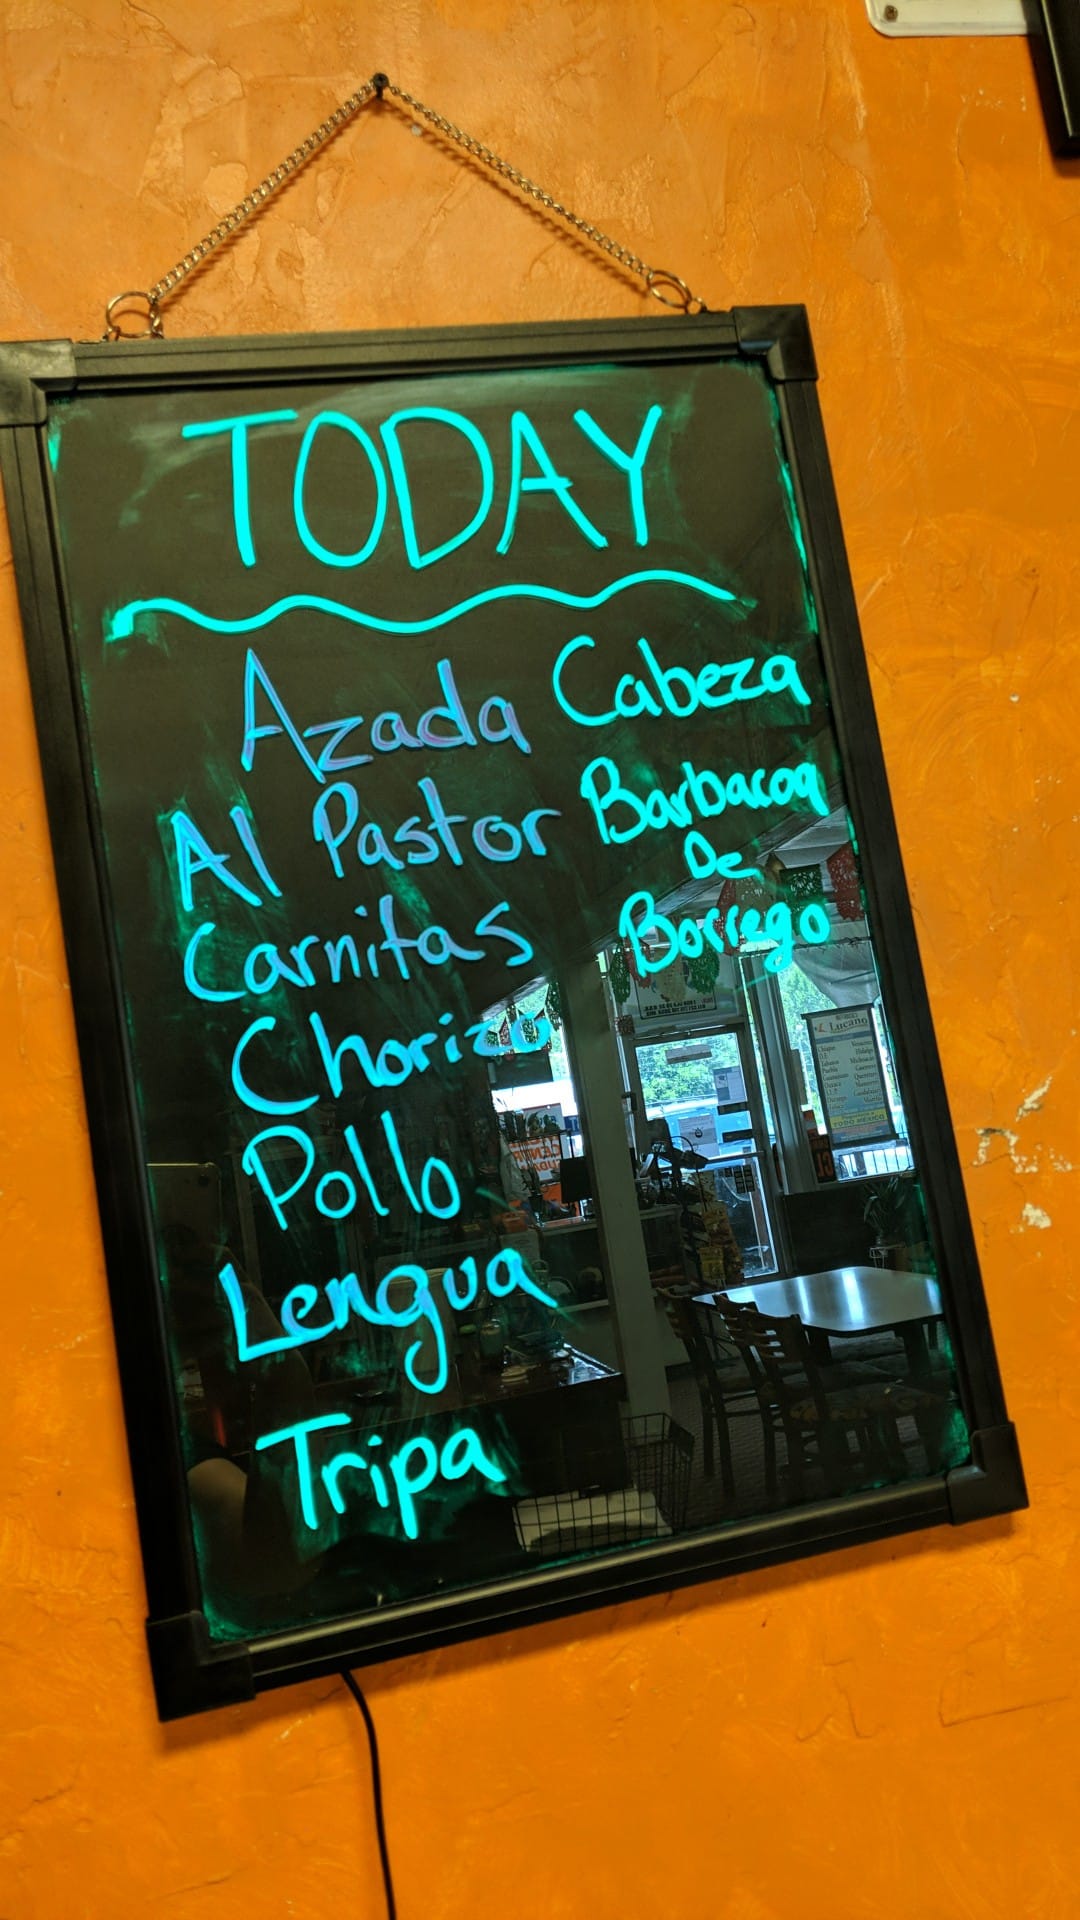 TODAY
Azada
Al Pastor
Carnitas
Chorizo
Pollo
Lengua
Tripa
Cabeza
Barbacoa
De
Borrego
Lucano
TODO MEXICO